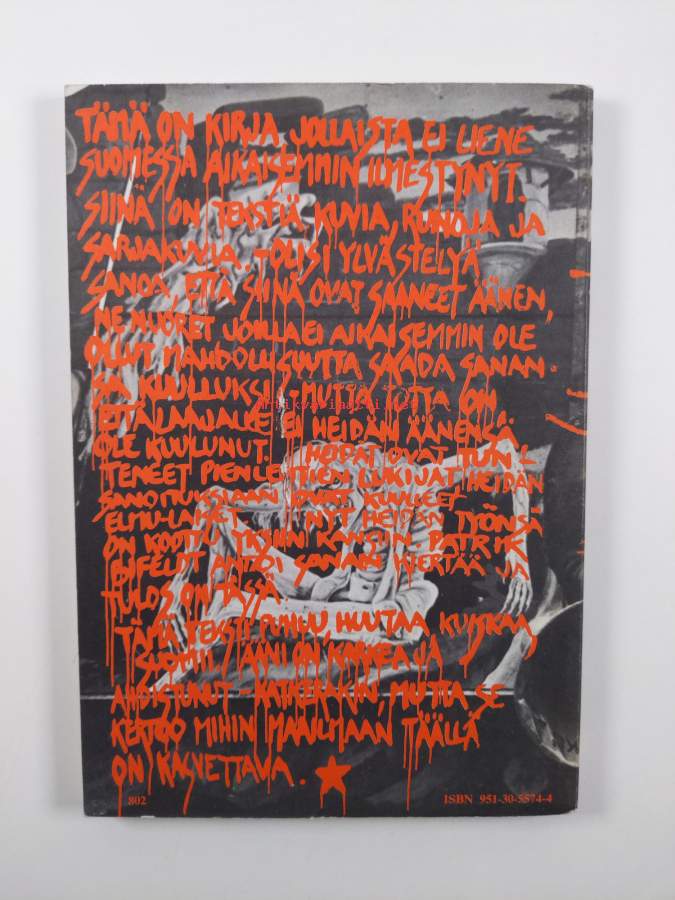 TÄMÄ ON KIRJA JOLLAISTA EI LIENE
SUOMESSA AIKAISEMMIN ILMESTYNYT.
SIINÄ ON TEKSTIÄ, KUVIA, RUNOJA JA
SARJAKUVIA. OLISI YLVÄSTELYÄ
SANOA, ETTÄ SIINÄ OVAT SAANEET ÄÄNEN,
NE NUORET JOILLA EI AIKAISEMMIN OLE
OLLUT MAHDOLLISUUTTA SAADA SANAN-
SA KUULLUKSI. MUTTA TOTTA ON
ETTÄ LAAJALLE EI HEIDÄN ÄÄNENSÄ
OLE KUULUNUT. HEIDÄT OVAT TUN-
TENEET PIENLEHTIEN LUKIJAT HEIDÄN
SANOITUKSIAAN OVAT KUULLEET
ELMU-LAISET. NYT HEIDÄN TYÖNSÄ
ON KOOTTU YKSIIN KANSIIN. PATRIK
ANTOI SANAN KIERTÄÄ JA
TULOS ON TÄSSÄ.
TÄMÄ TEKSTI PUHUU, HUUTAA, KUISKAA,
ÄÄNI ON KARKEA JA
AHDISTUNUT - KATKERAKIN, MUTTA SE
KERTOO MIHIN MAAILMAAN TÄÄLLÄ
ON KASVETTAVA.
802
ISBN 951-30-5574-4